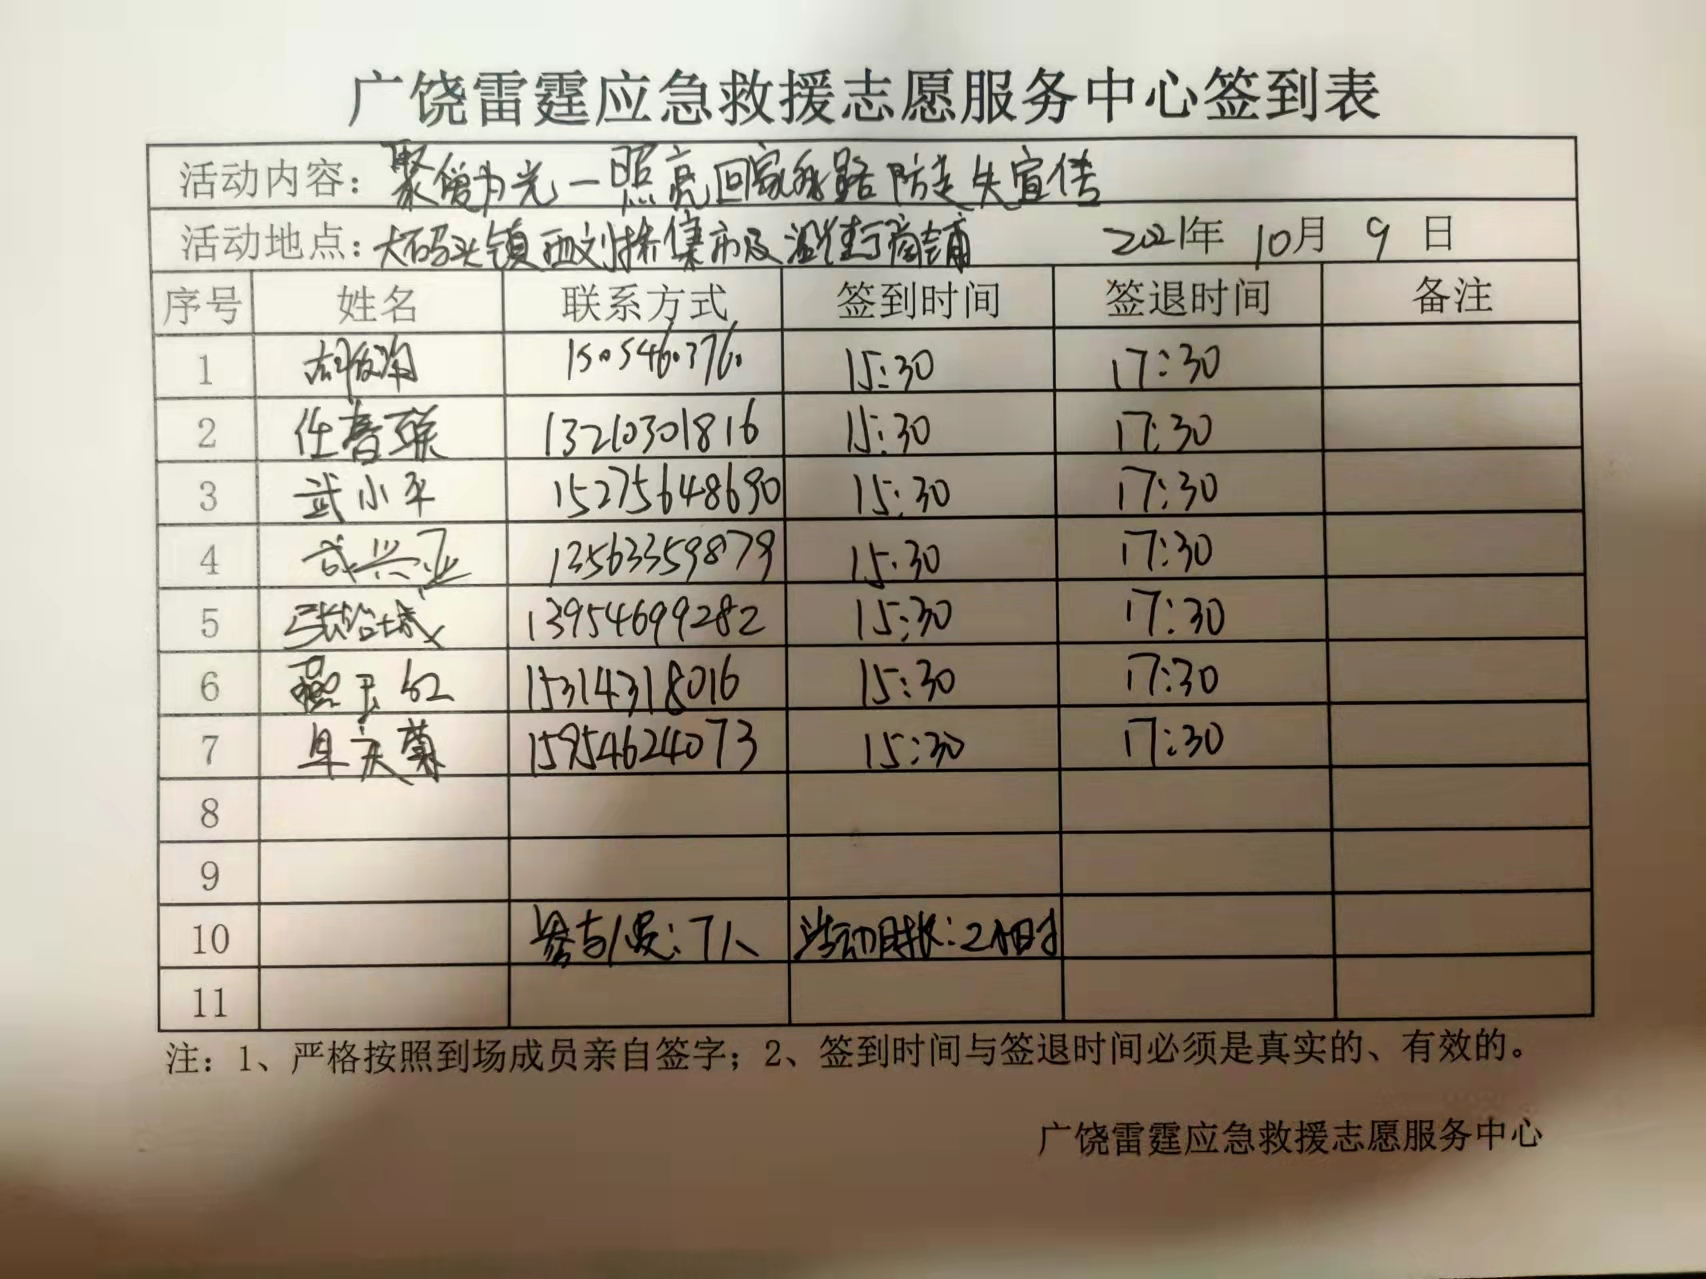 广饶雷霆应急救援志愿服务中心签到表
活动内容: 聚爱为光一照亮回家的路防走失宣传
活动地点: 大码头镇西刘桥集市及沿街商铺 2021年 10月 9日
序号 姓名 联系方式 签到时间 签退时间 备注
1 15:30 17:30
2 任春联 13210301816 15:30 17:30
3 武小平 15275648690 15:30 17:30
4 成兴亚 13563359879 15:30 17:30
5 13954699282 15:30 17:30
6 15314318016 15:30 17:30
7 15954624073 15:30 17:30
8
9
10 参与人员: 7人 活动时长: 2小时
11
注: 1、严格按照到场成员亲自签字; 2、签到时间与签退时间必须是真实的、有效的。
广饶雷霆应急救援志愿服务中心